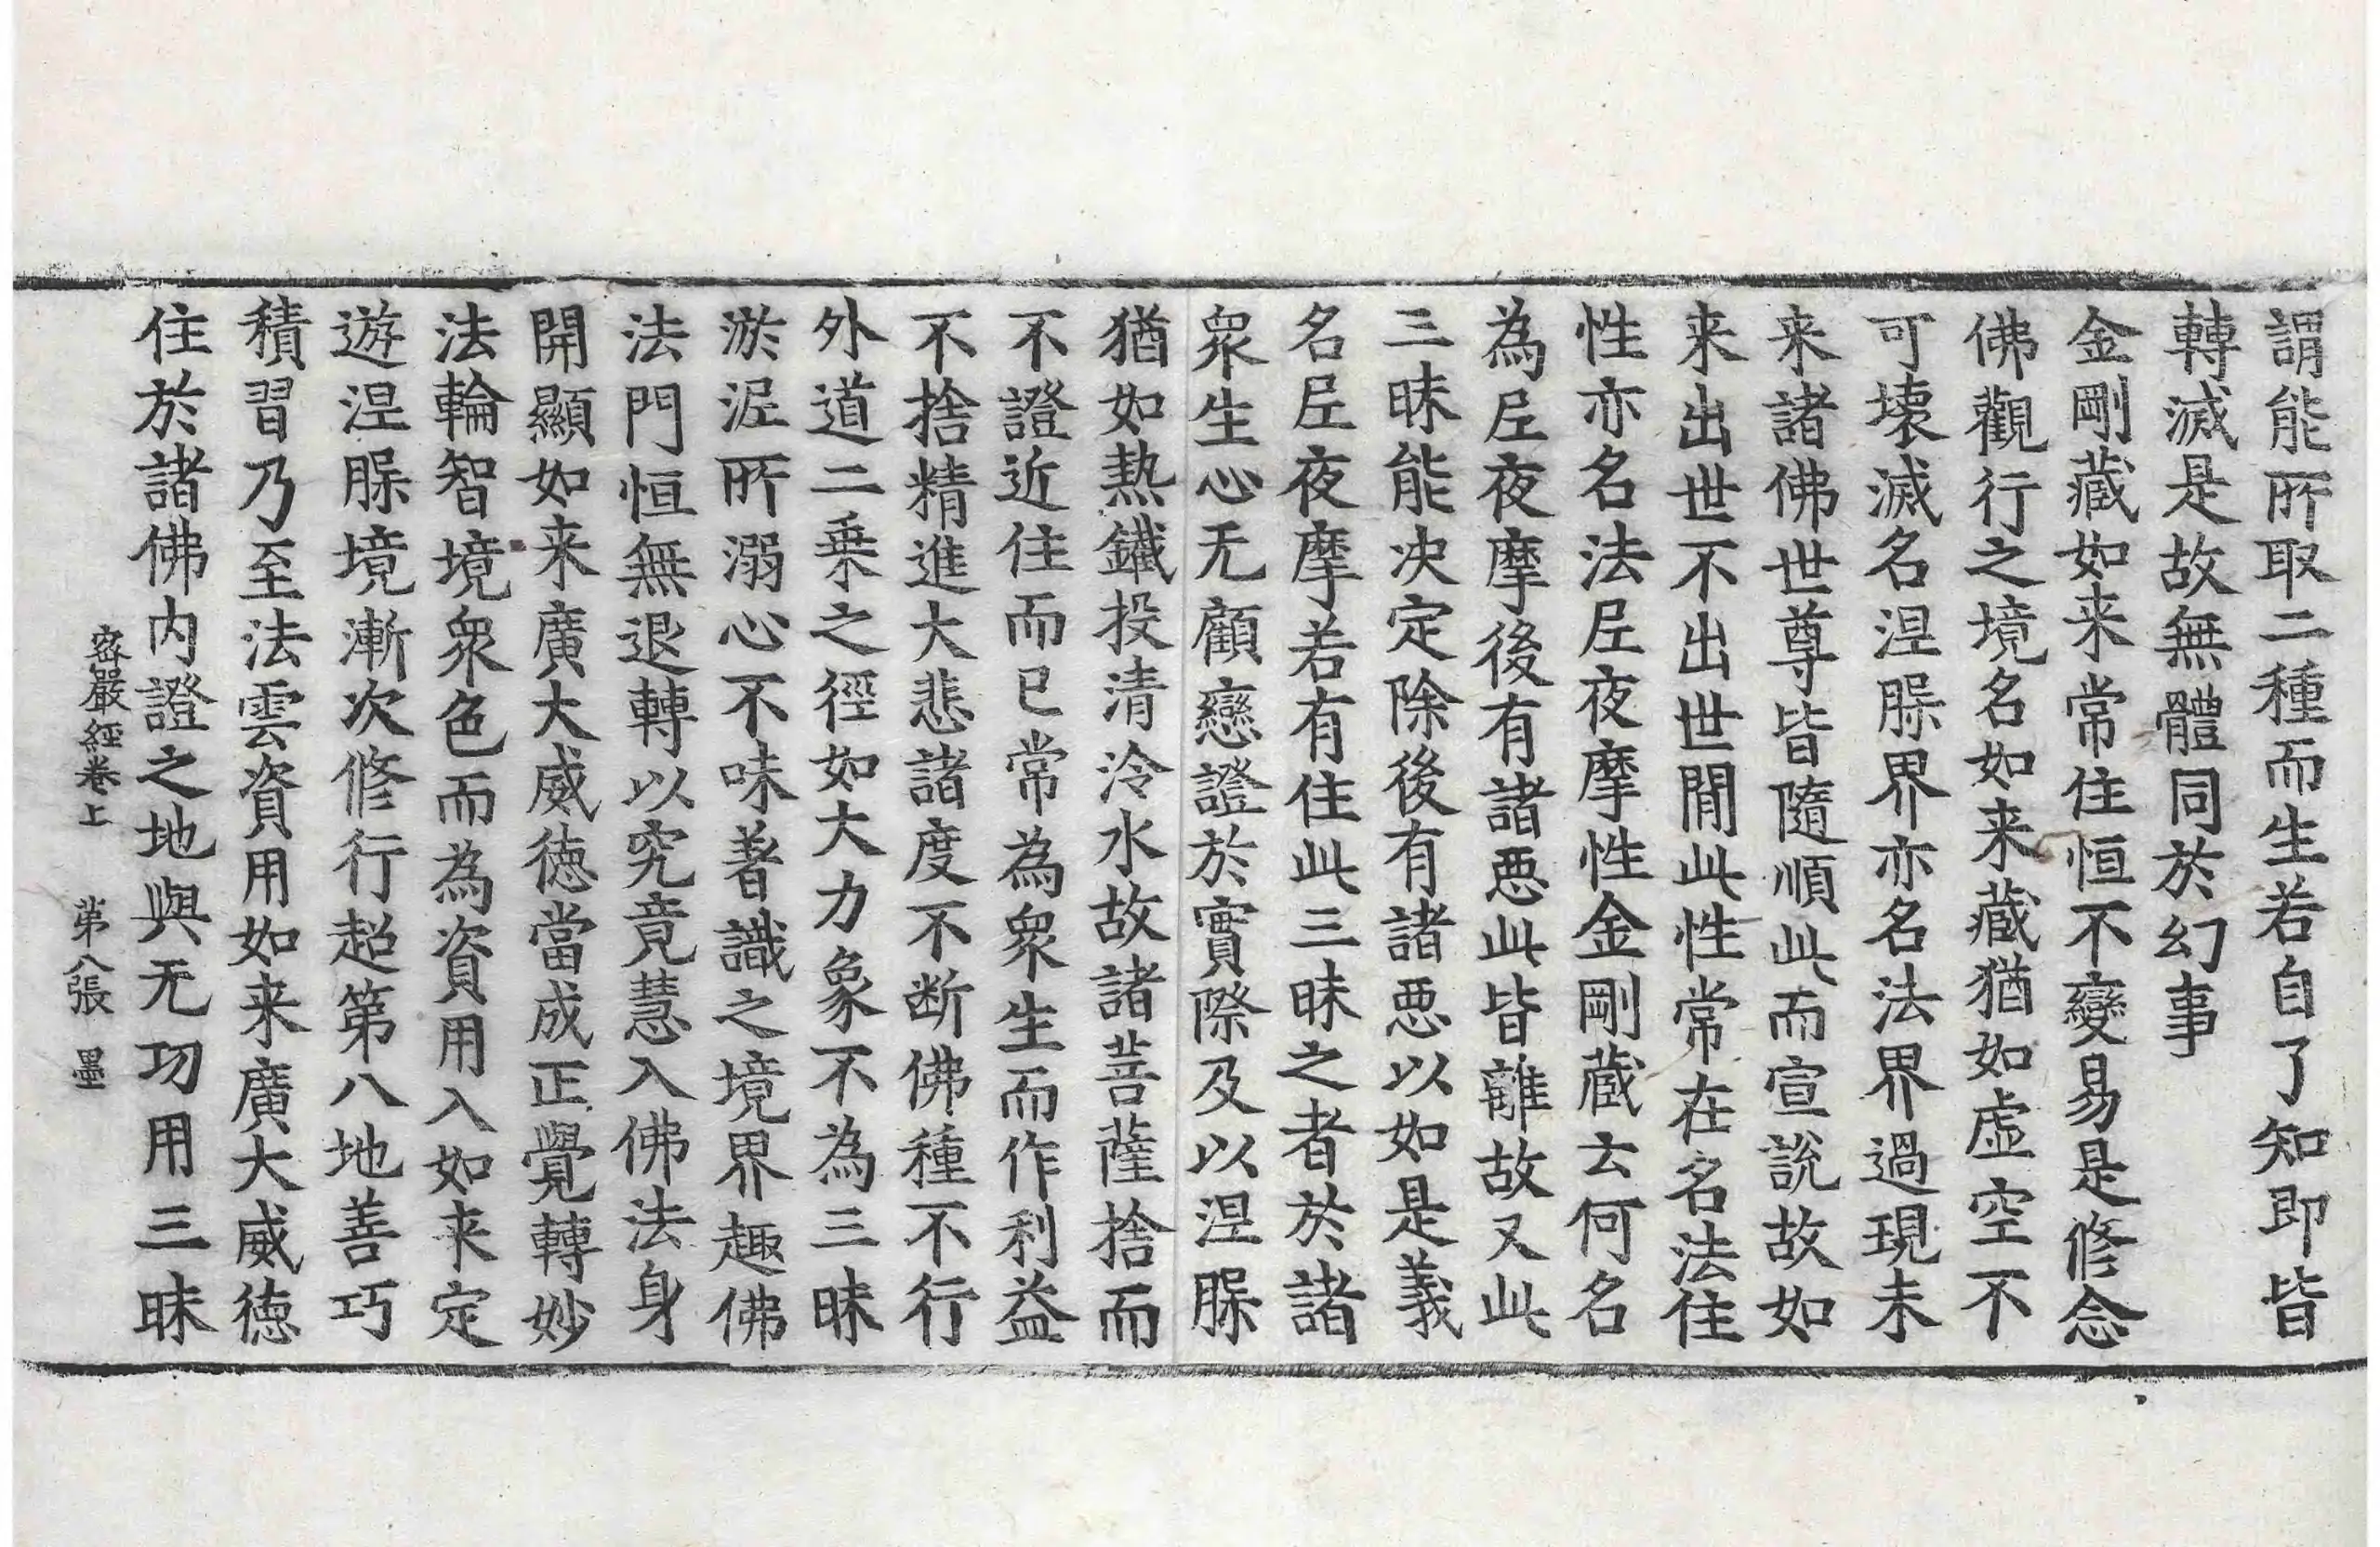 謂能所取二種而生若自了知即皆
轉滅是故無體同於幻事
金剛藏如来常住恒不變易是修念
佛觀行之境名如来藏猶如虛空不
可壞滅名涅槃界亦名法界過現未
来諸佛世尊皆隨順此而宣說故如
来出世不出世間此性常在名法住
性亦名法尼夜摩性金剛藏云何名
為尼夜摩後有諸惡此皆離故又此
三昧能决定除後有諸惡以如是義
名尼夜摩若有住此三昧之者於諸
衆生心无顧戀證於實際及以涅槃
猶如熱鐵投清冷水故諸菩薩捨而
不證近住而已常為衆生而作利益
不捨精進大悲諸度不断佛種不行
外道二乗之徑如大力象不為三昧
淤泥所溺心不味著識之境界趣佛
法門恒無退轉以究竟慧入佛法身
開顯如来廣大威德當成正覺轉妙
法輪智境衆色而為資用入如来定
遊涅槃境漸次修行超第八地善巧
積習乃至法雲資用如来廣大威德
住於諸佛内證之地與无功用三昧
密嚴經卷上 第八張 墨